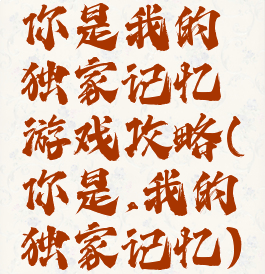 你是我的
独家记忆
游戏攻略(
你是,我的
独家记忆)